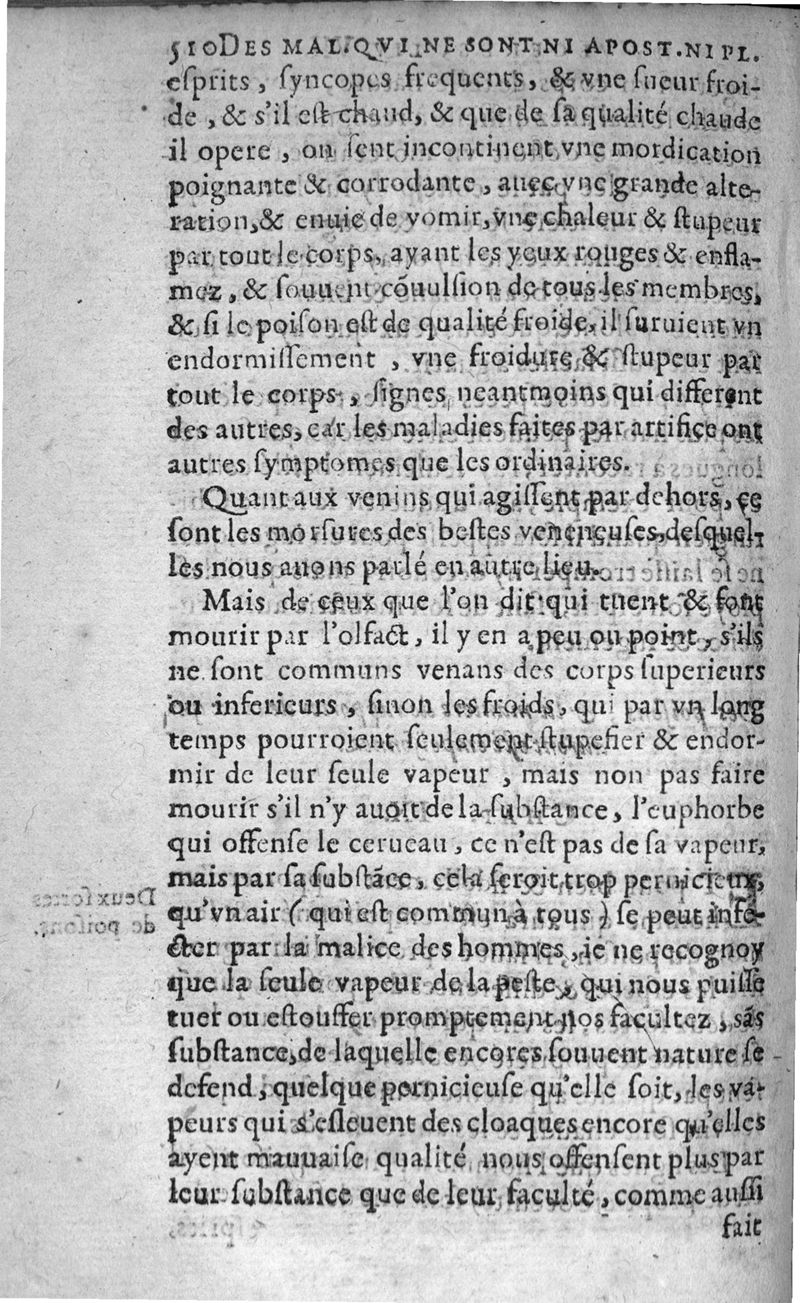 510 DES MAL. QVI NE SONT NI APOST. NI PL.
eſprits, ſyncopes frequents, & vne ſueur froi-
de, & s'il eſt chaud, & que de ſa qualité chaude
il opere, on ſent incontinent vne mordication
poignante & corrodante, auec vne grande alte-
ration, & enuie de vomir, vne chaleur & ſtupeur
par tout le corps, ayant les yeux rouges & enfla-
mez, & ſouuent cõuulſion de tous les membres,
& ſi le poiſon eſt de qualité froide, il ſuruient vn
endormiſſement, vne froidure & ſtupeur par
tout le corps, ſignes neantmoins qui different
des autres, car les maladies faites par artifice ont
autres ſymptomes que les ordinaires.
Quant aux venins qui agiſſent par dehors, ce
ſont les morſures des beſtes veneneuſes, deſquel-
les nous auons parlé en autre lieu.
Mais de ceux que l'on dit qui tuent & font
mourir par l'olfact, il y en a peu ou point, s'ils
ne ſont communs venans des corps ſuperieurs
ou inferieurs, ſinon les froids, qui par vn long
temps pourroient ſeulement ſtupefier & endor-
mir de leur ſeule vapeur, mais non pas faire
mourir s'il n'y auoit de la ſubſtance, l'euphorbe
qui offenſe le cerueau, ce n'eſt pas de ſa vapeur,
mais par ſa ſubſtãce, cela ſeroit trop pernicieux,
qu'vn air (qui eſt commun à tous) ſe peut infe-
cter par la malice des hommes, ie ne recognoy
que la ſeule vapeur de la peſte, qui nous puiſſe
tuer ou eſtouffer promptement nos facultez, sãs
ſubſtance, de laquelle encores ſouuent nature ſe
defend, quelque pernicieuſe qu'elle ſoit, les va-
peurs qui s'eſleuent des cloaques encore qu'elles
ayent mauuaiſe qualité nous offenſent plus par
leur ſubſtance que de leur faculté, comme auſſi
fait